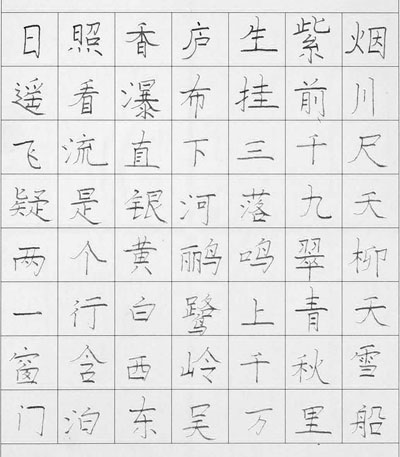 日照香庐生紫烟
遥看瀑布挂前川
飞流直下三千尺
疑是银河落九天
两个黄鹂鸣翠柳
一行白鹭上青天
窗含西岭千秋雪
门泊东吴万里船